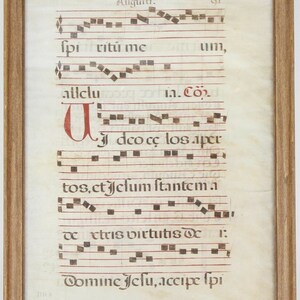 spi ritũ me um,
allelu ia. Cõ.
Vi deo cę los aper
tos, et Jesum stantem a
de xtris virtutis De i:
Domine Jesu, accipe spi